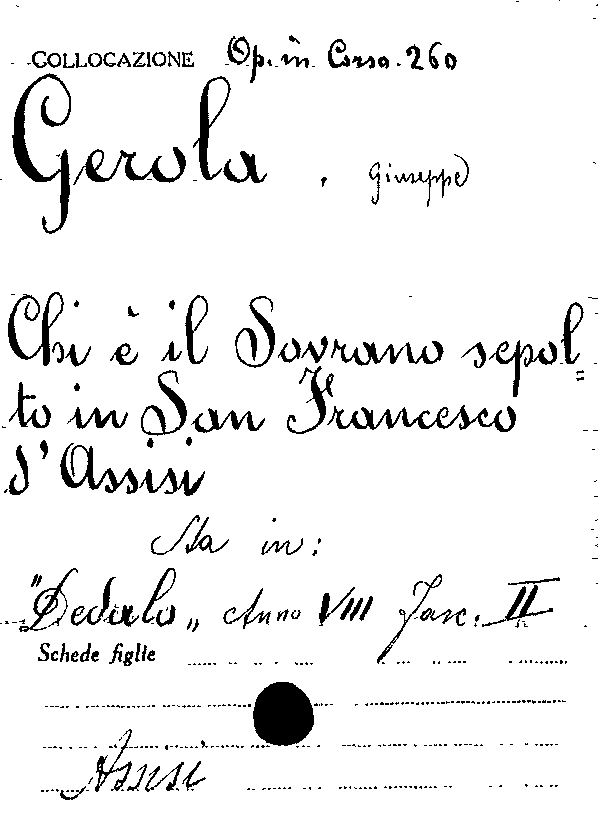 COLLOCAZIONE Op. in Corso. 260
Gerola, Giuseppe
Chi è il Sovrano sepol=
to in San Francesco
d'Assisi
Sta in:
"Dedalo„ Anno VIII Fasc. II
Schede figlie
Assisi